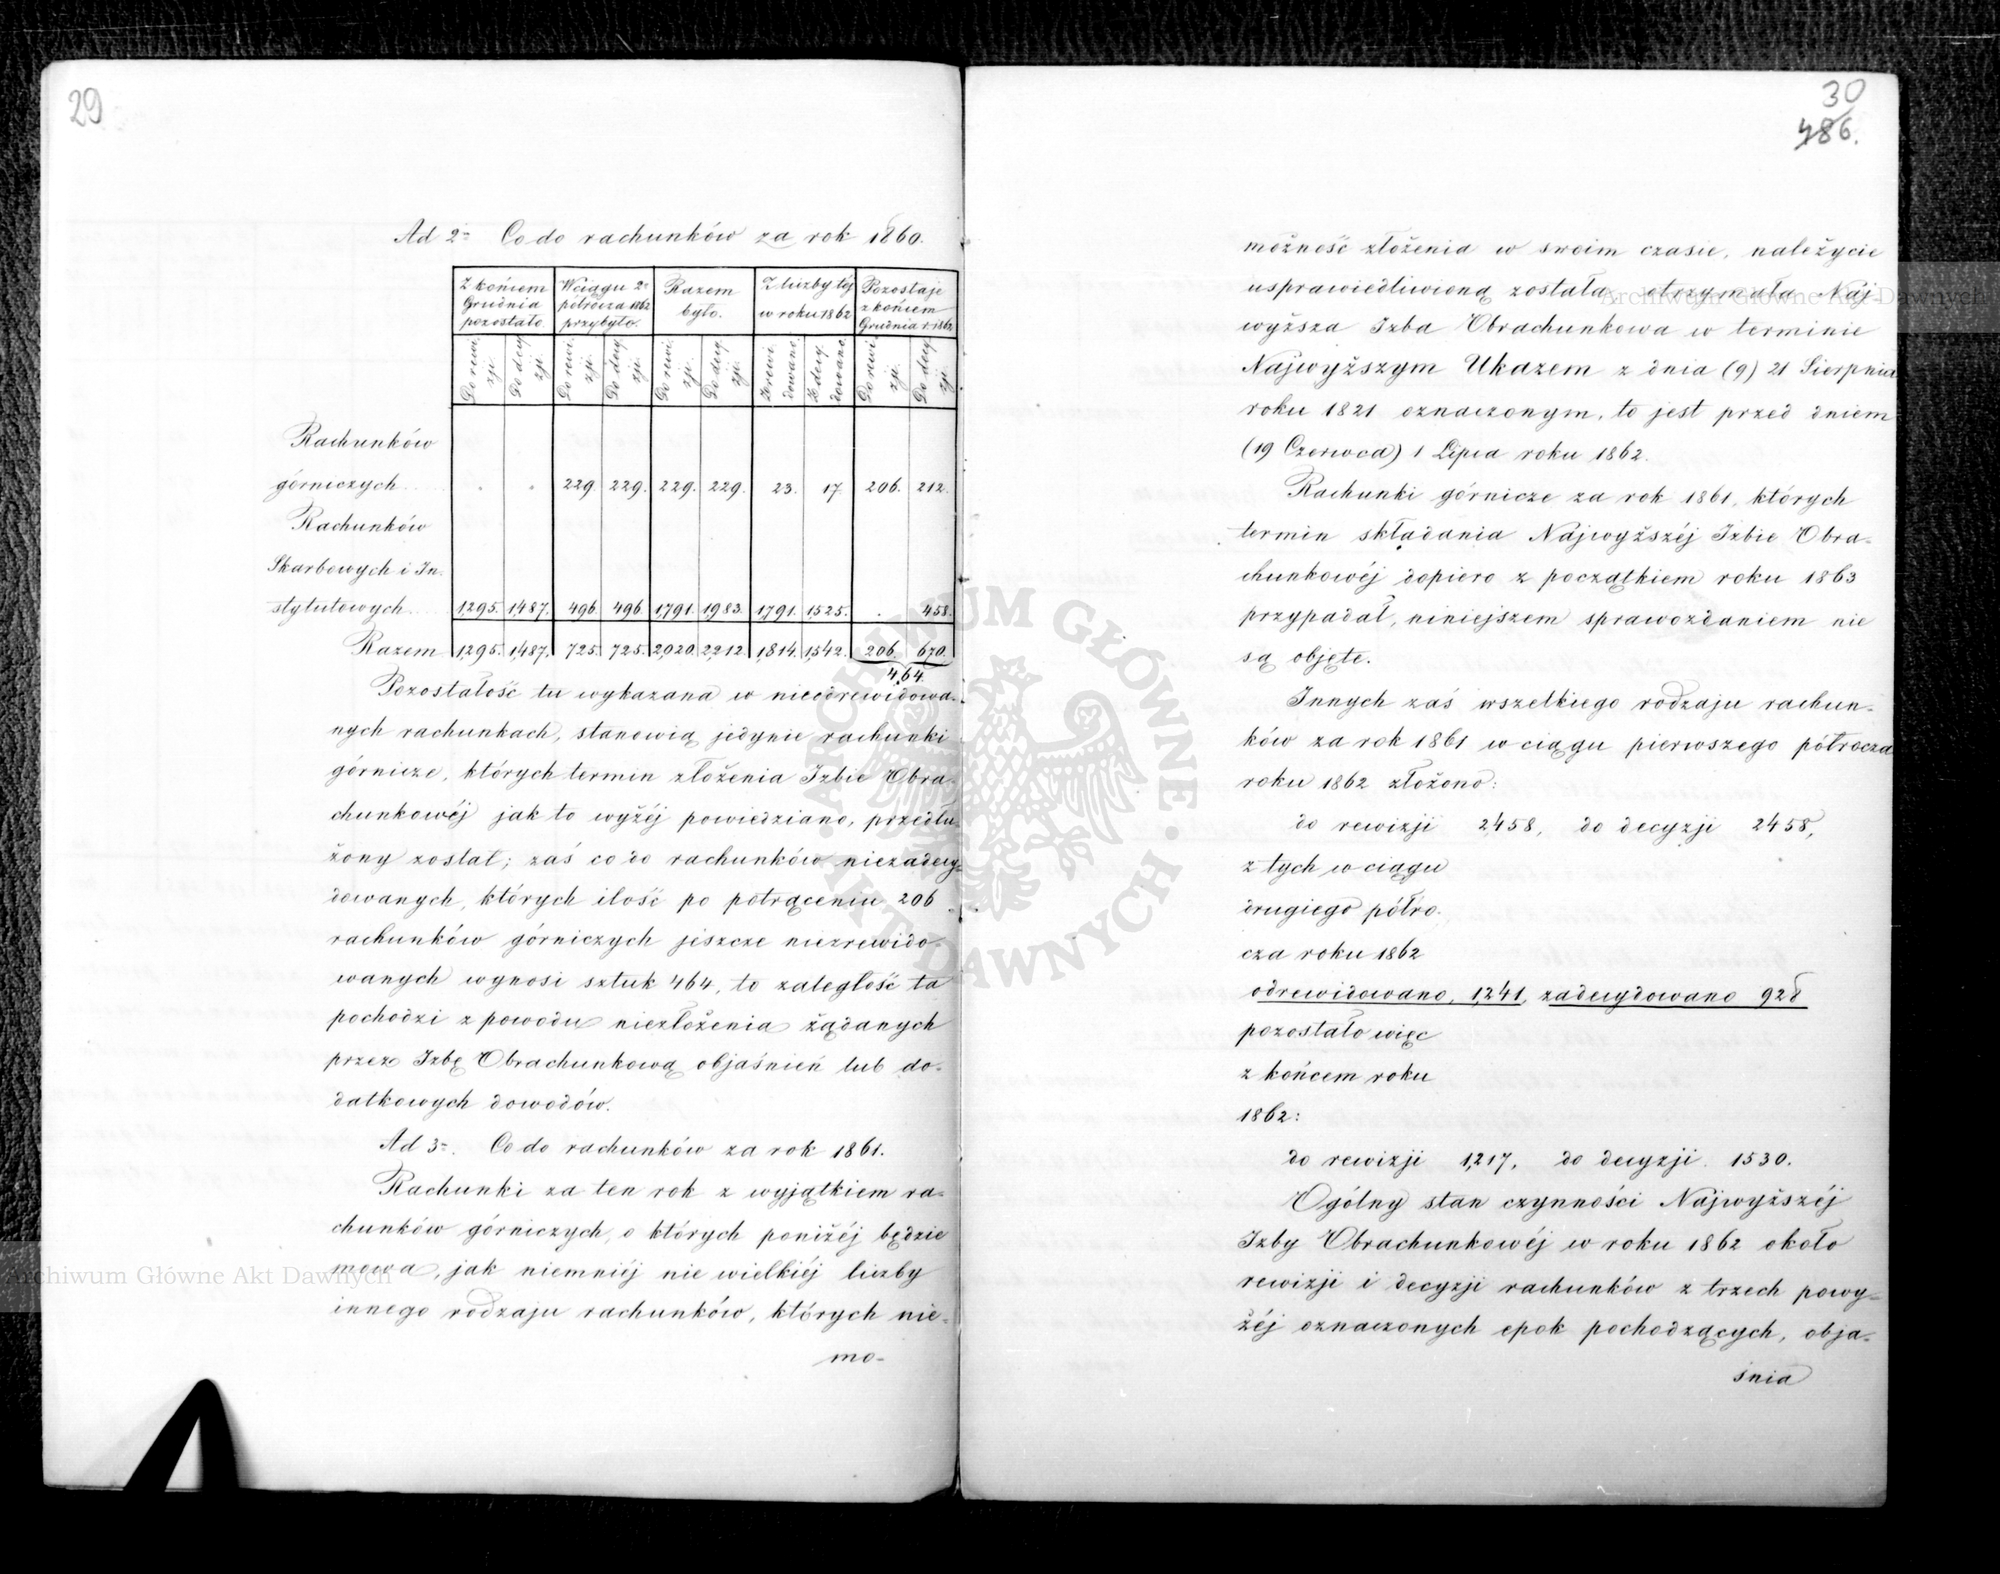 29
Ad 2= Co do rachunków za rok 1860.
Z końcem Grudnia pozostało. | W ciągu 2= półrocza 1862 przybyło. | Razem było. | Z liczby téj w roku 1862 | Pozostaje z końcem Grudnia r. 1862
Do rewizji. | Do decyzji. | Do rewizji. | Do decyzji. | Do rewizji. | Do decyzji. | Zrewidowano. | Zdecydowano. | Do rewizji. | Do decyzji.
Rachunków
górniczych . . . . 229. 229. 229. 229. 23. 17. 206. 212.
Rachunków
Skarbowych i In-
stytutowych . . . 1,295. 1,487. 496. 496. 1,791. 1,983. 1,791. 1,525. . 458.
Razem 1,295. 1,487. 725. 725. 2,020. 2,212. 1,814. 1,542. 206. 670.
464.
Pozostałość tu wykazana w nieodrewidowa-
nych rachunkach, stanowią jedynie rachunki
górnicze, których termin złożenia Izbie Obra-
chunkowéj jak to wyżéj powiedziano, przedłu-
żony został; zaś co do rachunków niezadecy-
dowanych, których ilość po potrąceniu 206
rachunków górniczych jeszcze niezrewido-
wanych wynosi sztuk 464, to zaległość ta
pochodzi z powodu niezłożenia żądanych
przez Izbę Obrachunkową objaśnień lub do-
datkowych dowodów.
Ad 3=. Co do rachunków za rok 1861.
Rachunki za ten rok z wyjątkiem ra-
chunków górniczych, o których poniżéj będzie
mowa, jak niemniéj nie wielkiéj liczby
innego rodzaju rachunków, których nie-
mo-
30
486.
możność złożenia w swoim czasie, należycie
usprawiedliwioną została otrzymała Naj-
wyższa Izba Obrachunkowa w terminie
Najwyższym Ukazem z dnia (9) 21 Sierpnia
roku 1821 oznaczonym, to jest przed dniem
(19 Czerwca) 1 Lipca roku 1862.
Rachunki górnicze za rok 1861, których
termin składania Najwyższéj Izbie Obra-
chunkowéj dopiero z początkiem roku 1863
przypadał, niniejszem sprawozdaniem nie
są objęte.
Innych zaś wszelkiego rodzaju rachun-
ków za rok 1861 w ciągu pierwszego półrocza
roku 1862 złożono:
do rewizji 2458, do decyzji 2458,
z tych w ciągu
drugiego półro-
cza roku 1862
odrewidowano, 1,241, zadecydowano 928
pozostało więc
z końcem roku
1862:
do rewizji 1,217, do decyzji 1530.
Ogólny stan czynności Najwyższéj
Izby Obrachunkowéj w roku 1862 około
rewizji i decyzji rachunków z trzech powy-
żéj oznaczonych epok pochodzących, obja-
śnia
Archiwum Główne Akt Dawnych
Archiwum Główne Akt Dawnych
ARCHIWUM GŁÓWNE AKT DAWNYCH